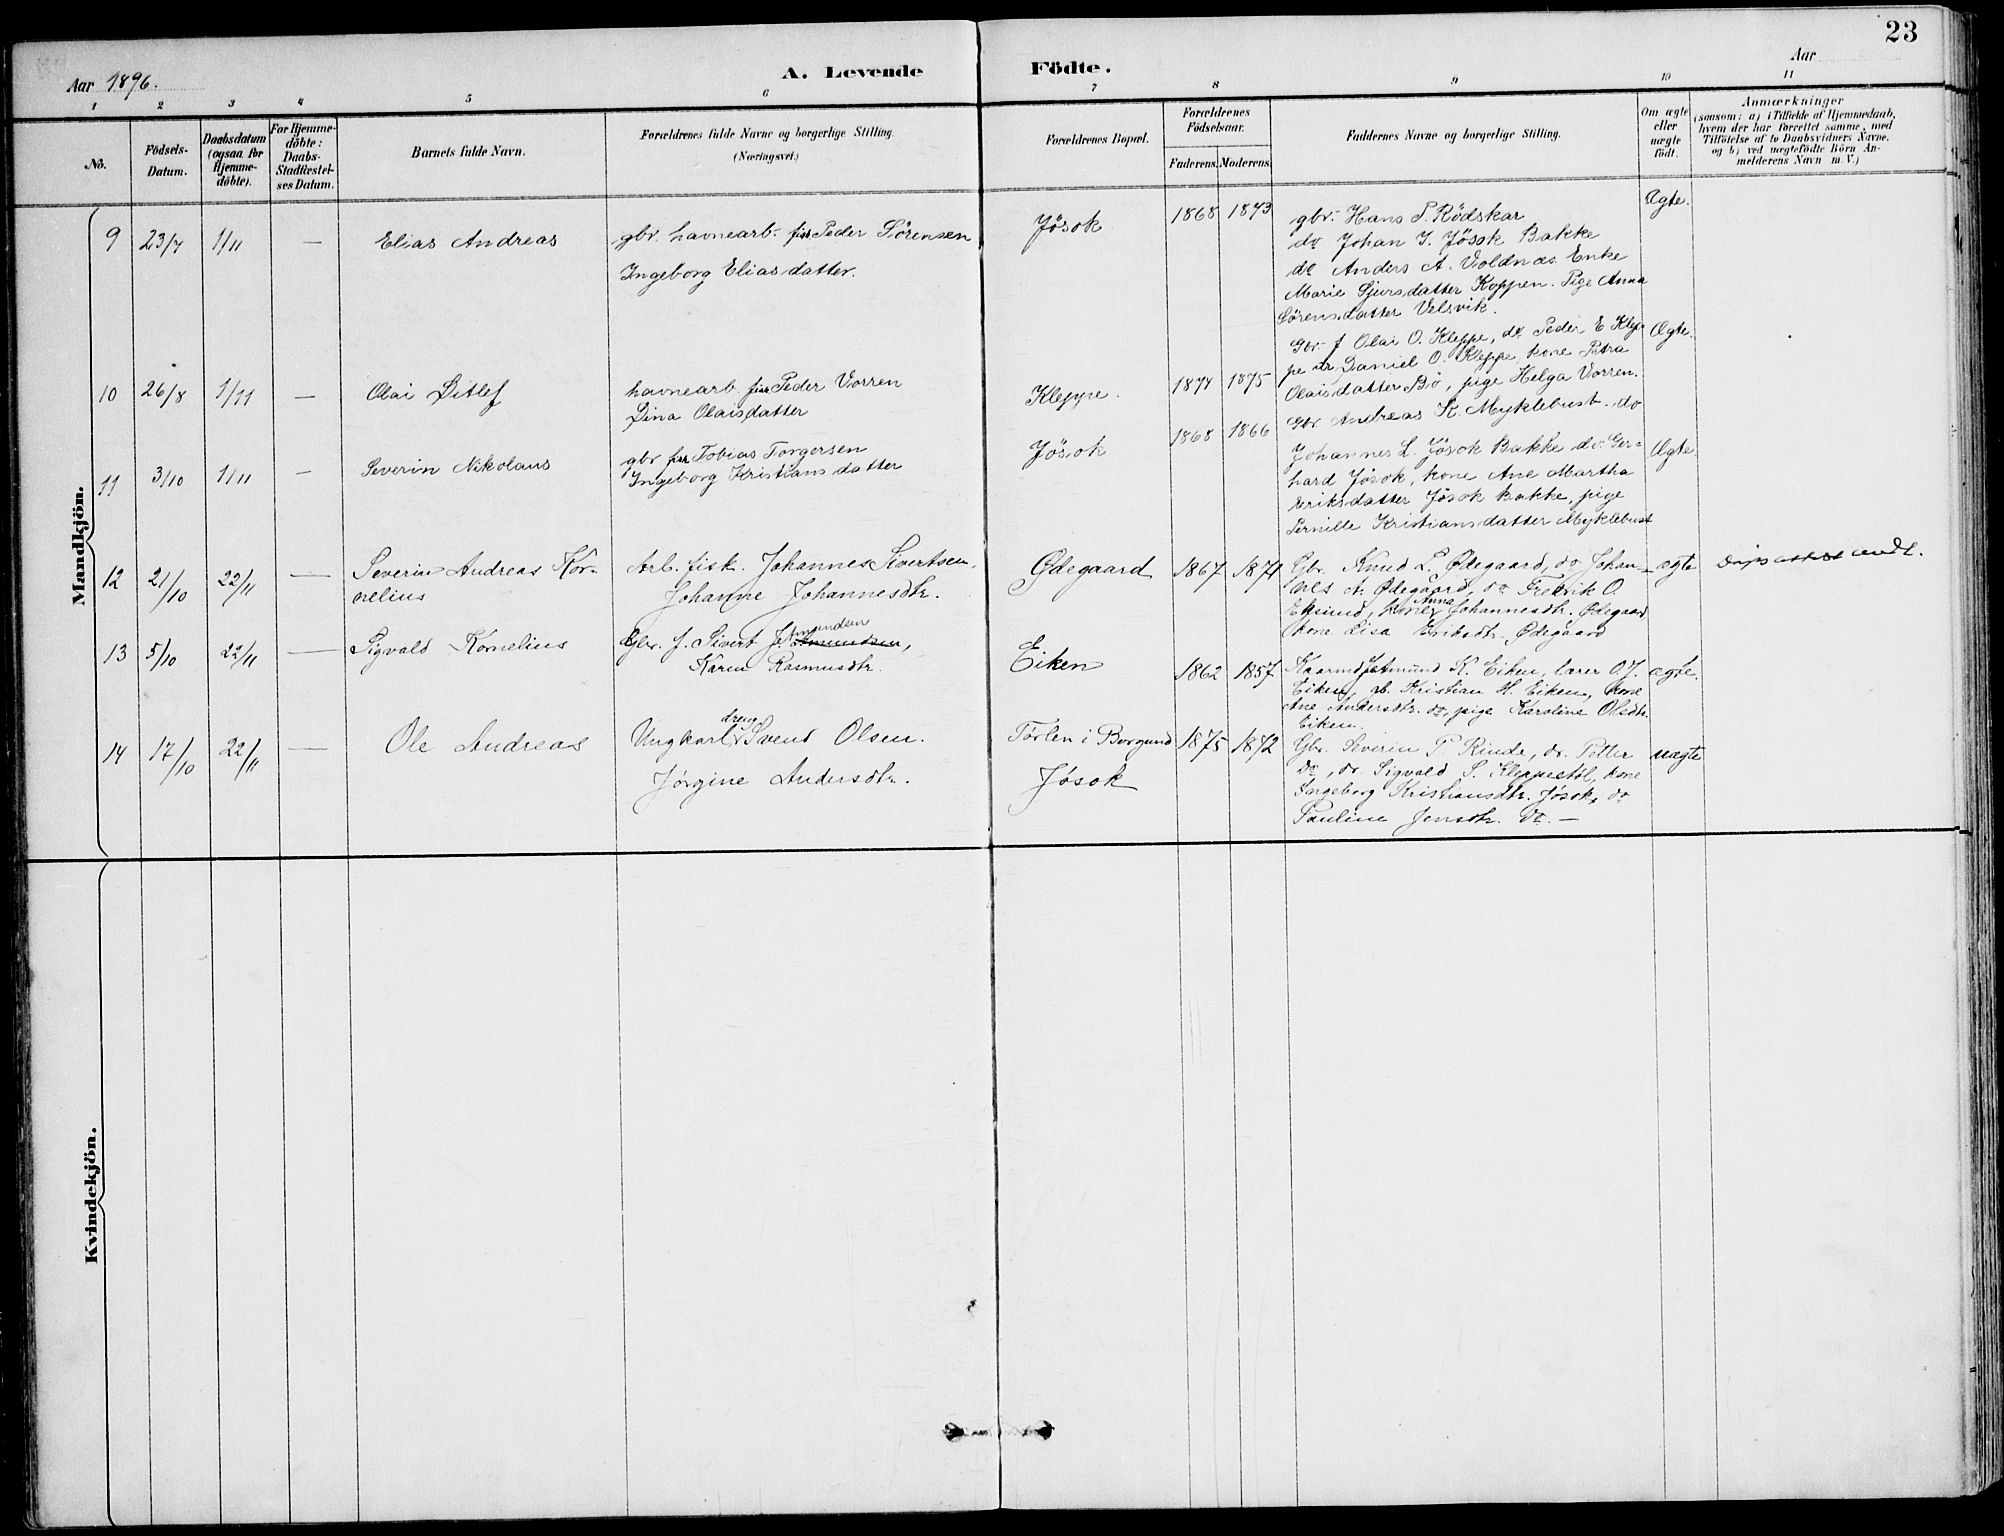 23
Aar 1896.
A. Levende Födte.
Aar
1 2 3 4 5 6 7 8 9 10 11
Nö.
Födsels-Datum.
Daabsdatum (ogsaa for Hjemme-döbte).
For Hjemme-döbte: Daabs-Stadfæstel-ses Datum.
Barnets fulde Navn.
Forældrenes fulde Navne og borgerlige Stilling.
(Næringsvei.)
Forældrenes Bopæl.
Forældrenes Födselsaar.
Faderens. Moderens.
Faddernes Navne og borgerlige Stilling.
Om ægte eller uægte födt.
Anmærkninger
(saasom: a) i Tilfælde af Hjemmedaab,
hvem der har forrettet samme, med
Tilföielse af to Daabsvidners Navne.
og b) ved uægtefödte Börn An-
melderens Navn m. V.)
Mandkjön.
9 23/7 1/11 — Elias Andreas
gbr. havnearb. Peder Sörensen
Ingeborg Eliasdatter.
Jösok
1868 1873
gbr. Hans P. Rödskar
do Johan J. Jösok Bakke
do Anders A. Voldnæs. Enke
Marie Sjursdatter Koppen. Pige Anna
Sörensdatter Velsvik.
Ægte.
10 26/8 1/11 — Olai Ditlef
havnearb. Peder Vorren
Dina Olaisdatter
Kleppe.
1874 1875
Gbr. f Olai O. Kleppe, do Peder E Klep-
pe do Daniel O. Kleppe, kone Petra
Olaisdatter Bö, pige Helga Vorren.
Ægte.
11 3/10 1/11 — Severin Nikolaus
gbr Tobias Torgersen
Ingeborg Kristiansdatter
Jösok
1868 1866
Gbr. Andreas K. Myklebust. do
Johannes L. Jösok Bakke do Ger-
hard Jösok, kone Ane Martha
Eriksdatter Jösok Bakke, pige
Pernille Kristiansdatter Myklebust
Ægte.
12 21/10 22/11 — Severin Andreas Kor-
nelius
Arb. fisk. Johannes Sivertsen,
Johanne Johannesdtr.
Ødegaard
1867 1871
Gbr. Knud L. Ødegaard, do Johan-
nes A. Ødegaard, do Fredrik O.
Eksund, kone Anna Johannesdtr. Ødegaard
kone Lisa Eriksdtr. Ødegaard
ægte
13 5/10 22/11 — Sigvald Kornelius
Gbr. f. Sivert J. Amundsen,
Karen Rasmusdtr.
Eiken
1862 1857
Kaarmd Jetmund K. Eiken, lærer O. J.
Eiken, gb. Kristian H. Eiken, kone
Ane Andersdtr. do, pige Karoline Olsdtr.
Eiken.
ægte.
14 17/10 22/11 — Ole Andreas
Ungkarl, dreng Svend Olsen.
Jørgine Andersdtr.
Tørlen i Borgund
Jøsok
1875 1872
Gbr. Severin P. Rinde, do. Petter
Do, do. Sigvald S. Kleppestöl, kone
Ingeborg Kristiansdtr. Jøsok, do
Pauline Jensdtr. do. —
uægte
Kvindekjön.